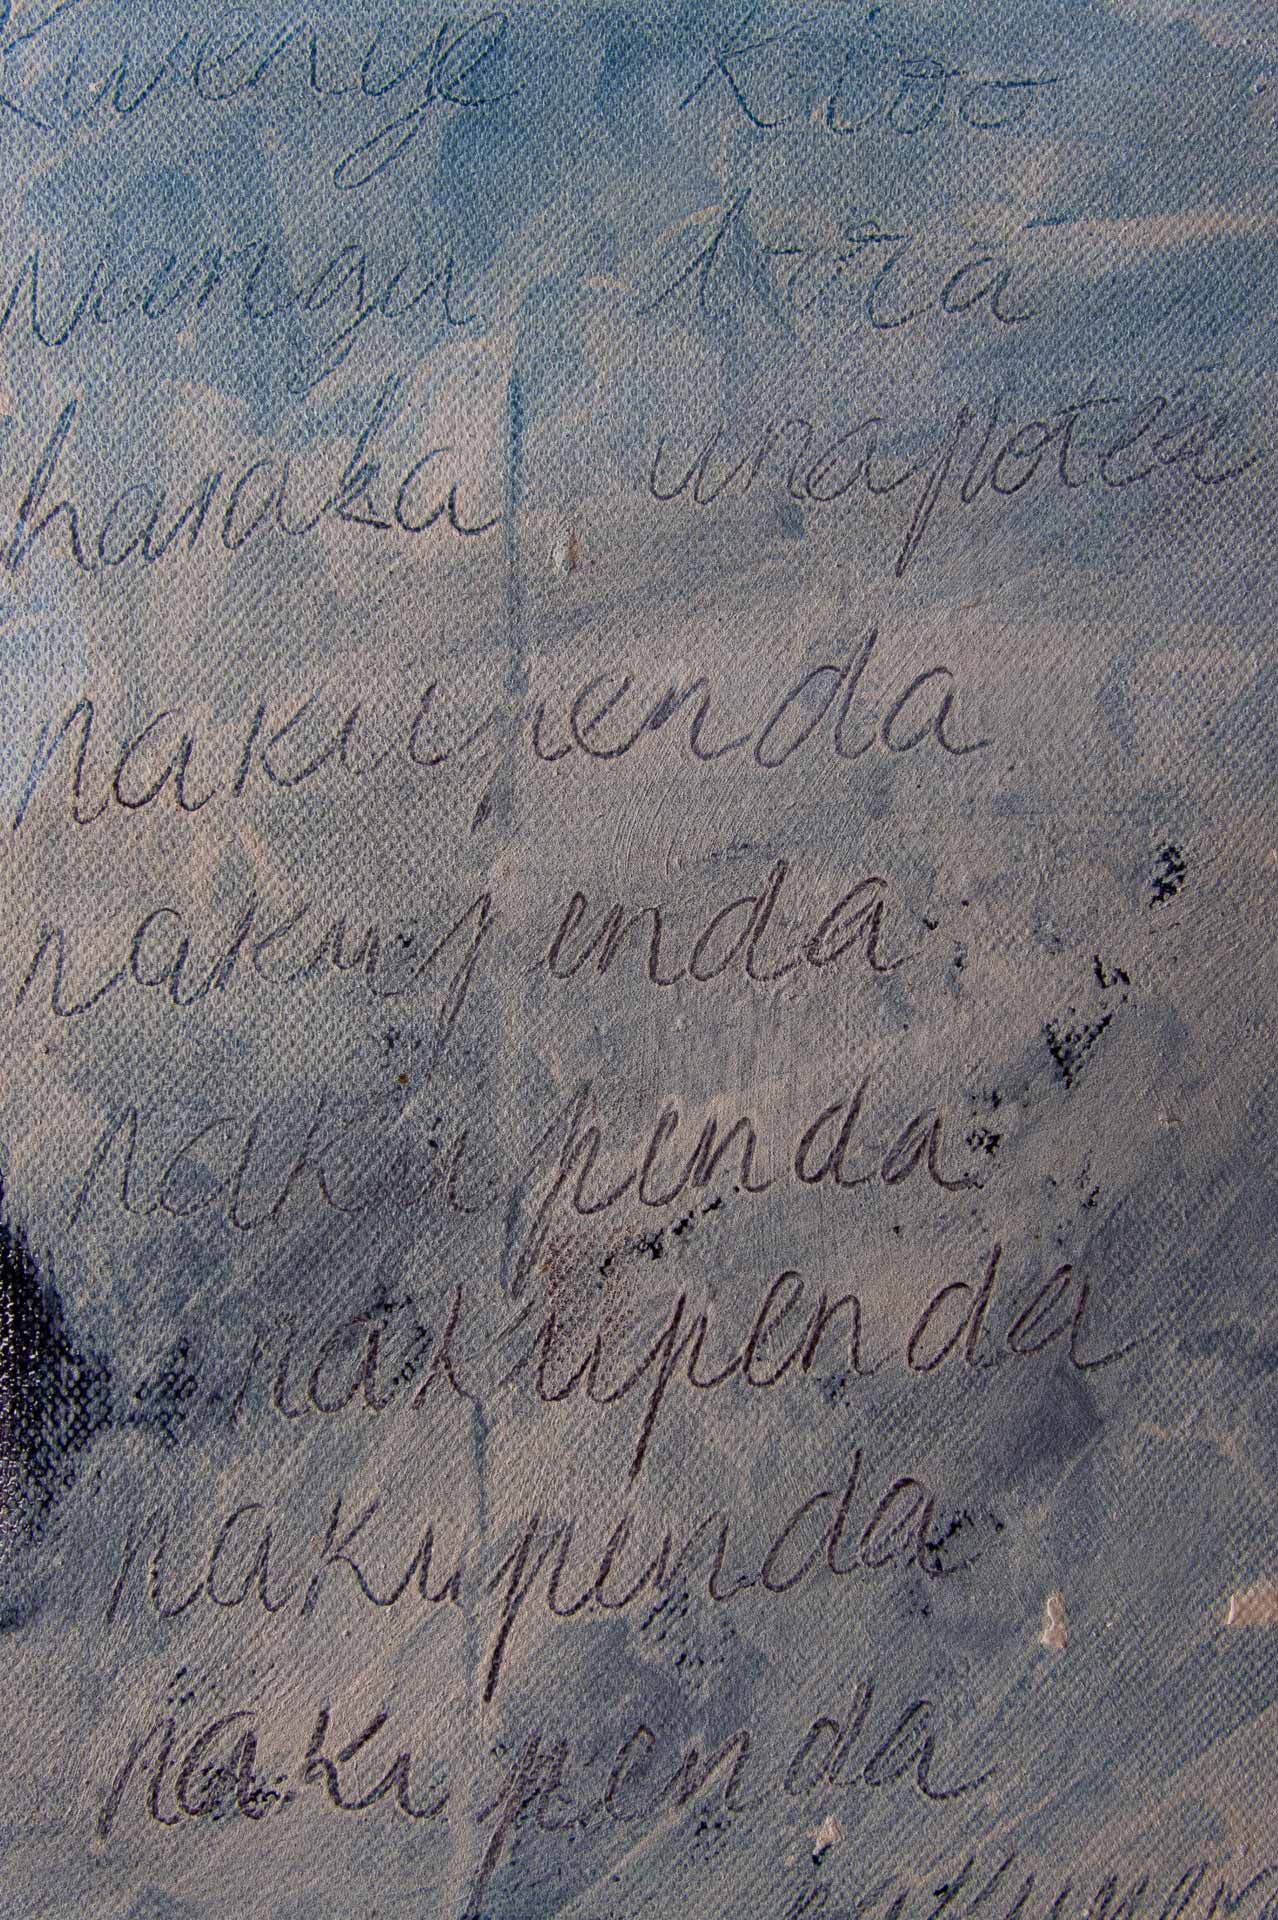 kwenye kioo
nwangu
haraka unapotee
nakupenda
nakupenda
nakupenda
nakupenda
nakupenda
nakupenda